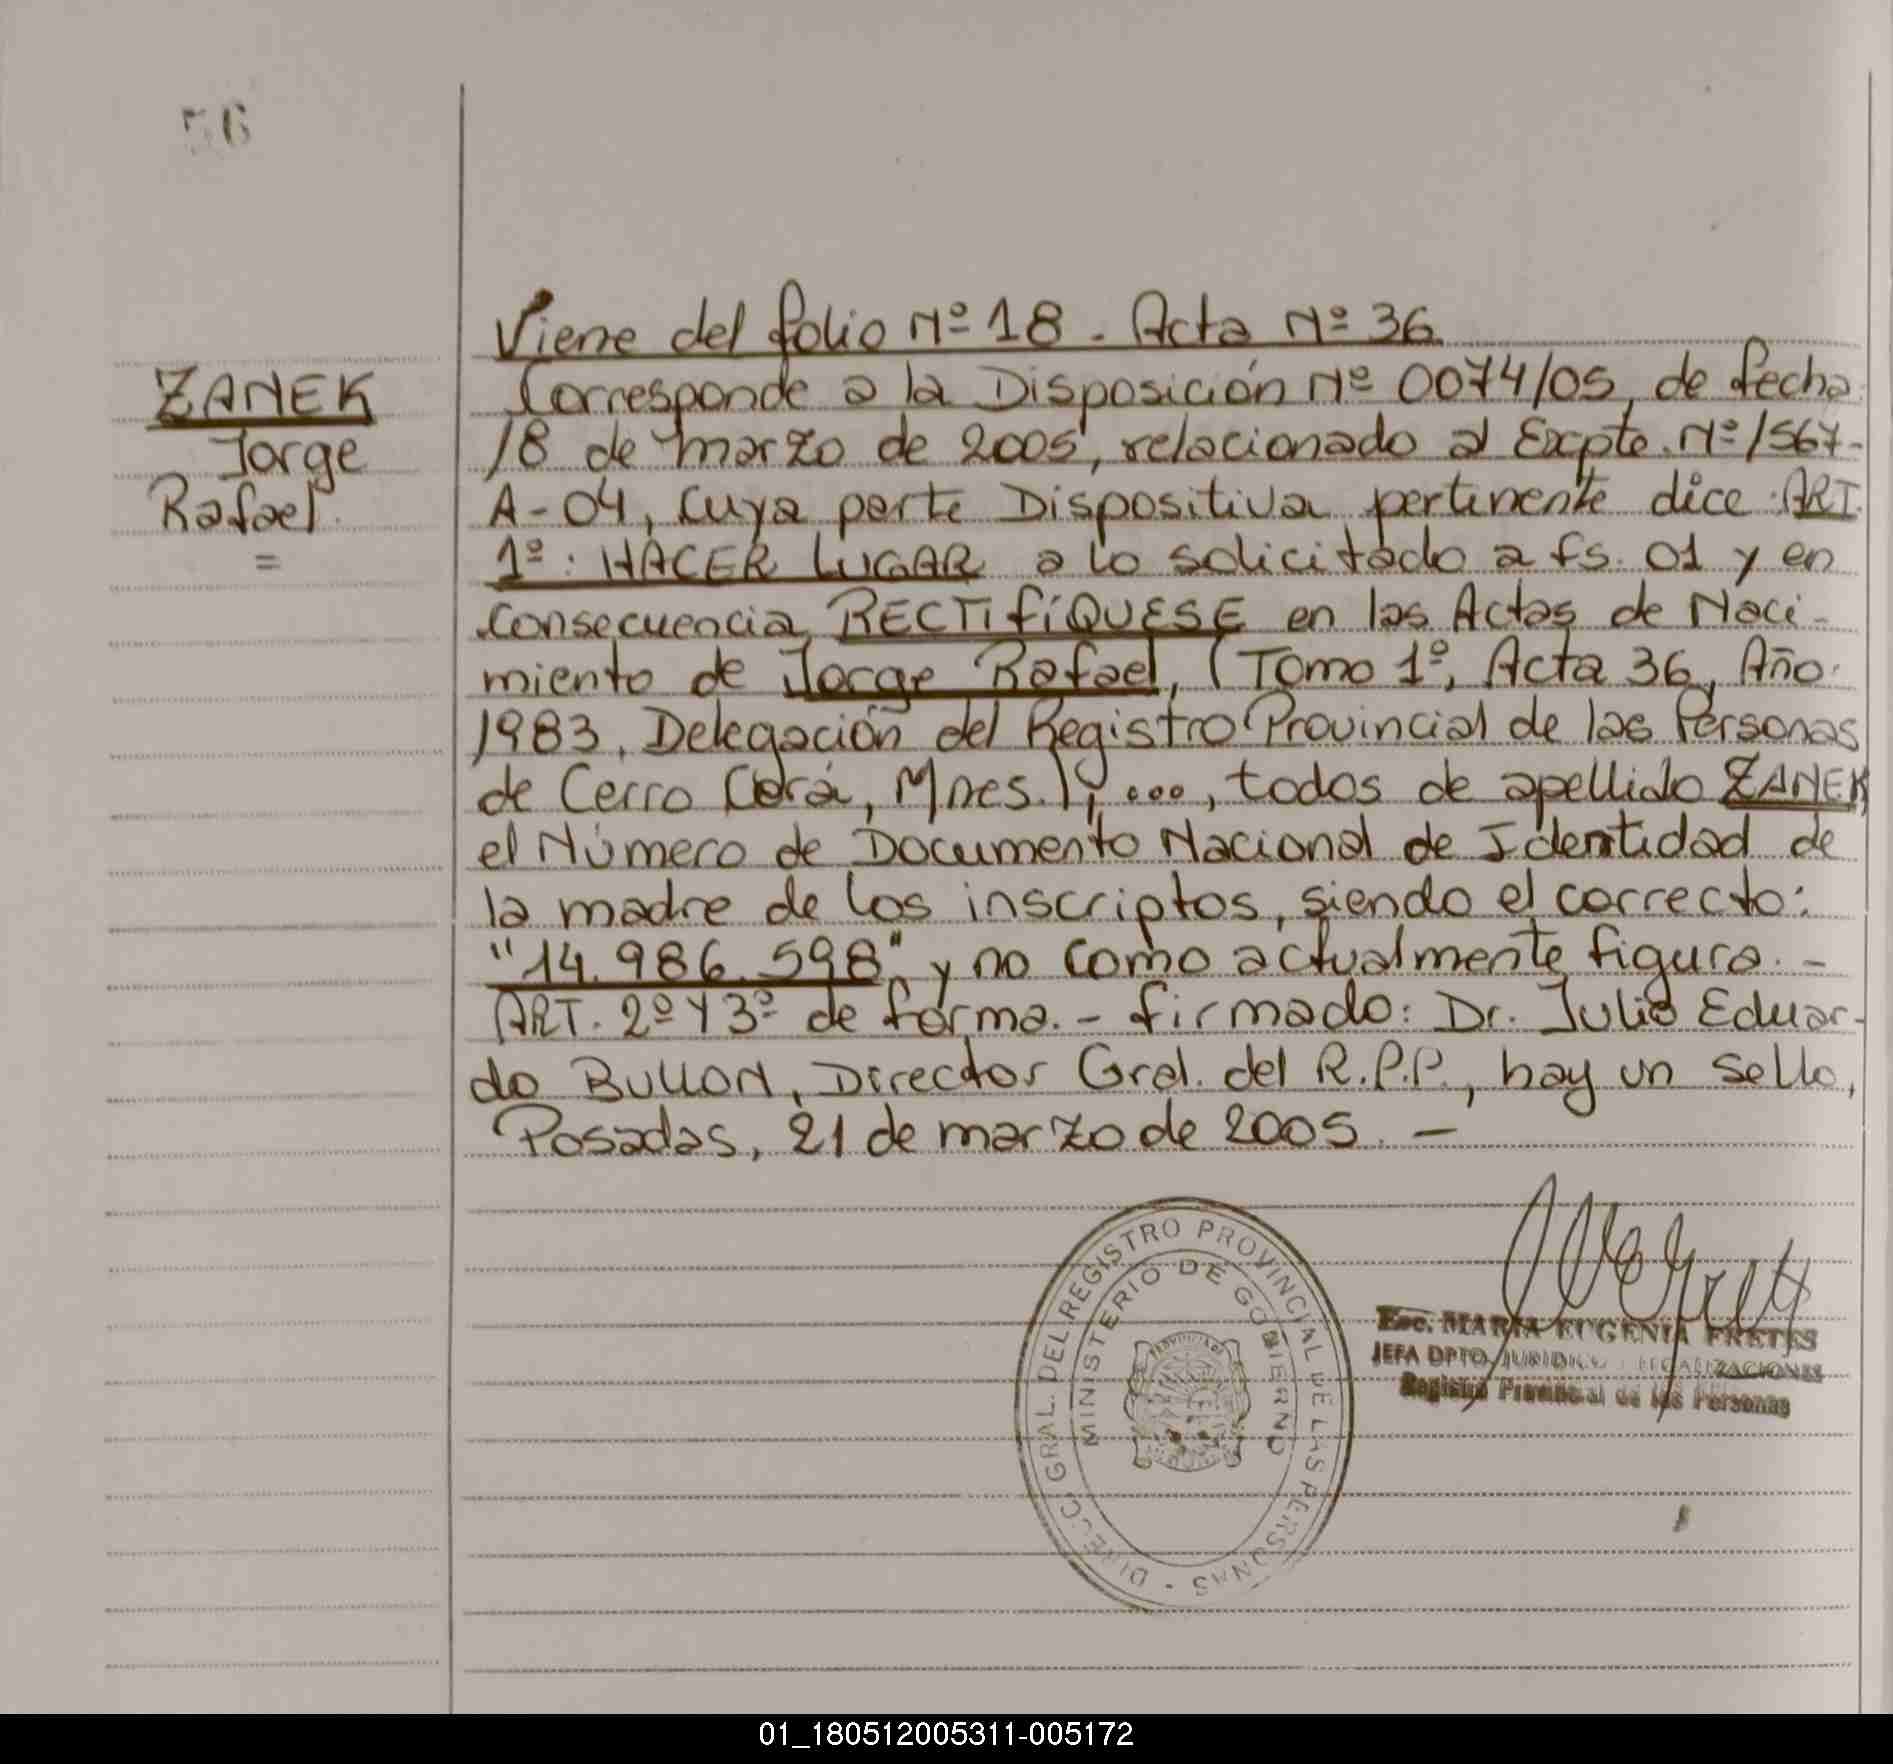 56
ZANEK
Jorge
Rafael.
=
Viene del folio Nº 18. Acta Nº 36
Corresponde a la Disposición Nº 0074/05, de fecha
18 de marzo de 2005, relacionado al Expte. Nº 1567-
A-04, cuya parte Dispositiva pertinente dice: ART.
1º: HACER LUGAR a lo solicitado a fs. 01 y en
consecuencia RECTIFÍQUESE en las Actas de Naci-
miento de Jorge Rafael, (Tomo 1º, Acta 36, Año
1983, Delegación del Registro Provincial de las Personas
de Cerro Corá, Mnes.); ..., todos de apellido ZANEK,
el Número de Documento Nacional de Identidad de
la madre de los inscriptos, siendo el correcto:
"14.986.598" y no como actualmente figura.-
ART. 2º Y 3º de forma.- firmado: Dr. Julio Eduar-
do BULLON, Director Gral. del R.P.P., hay un sello,
Posadas, 21 de marzo de 2005.-
DIRECC. GRAL. DEL REGISTRO PROVINCIAL DE LAS PERSONAS -
MINISTERIO DE GOBIERNO
Esc. MARIA EUGENIA FRETES
JEFA DPTO. JURIDICO LEGALIZACIONES
Registro Provincial de las Personas
01_180512005311-005172